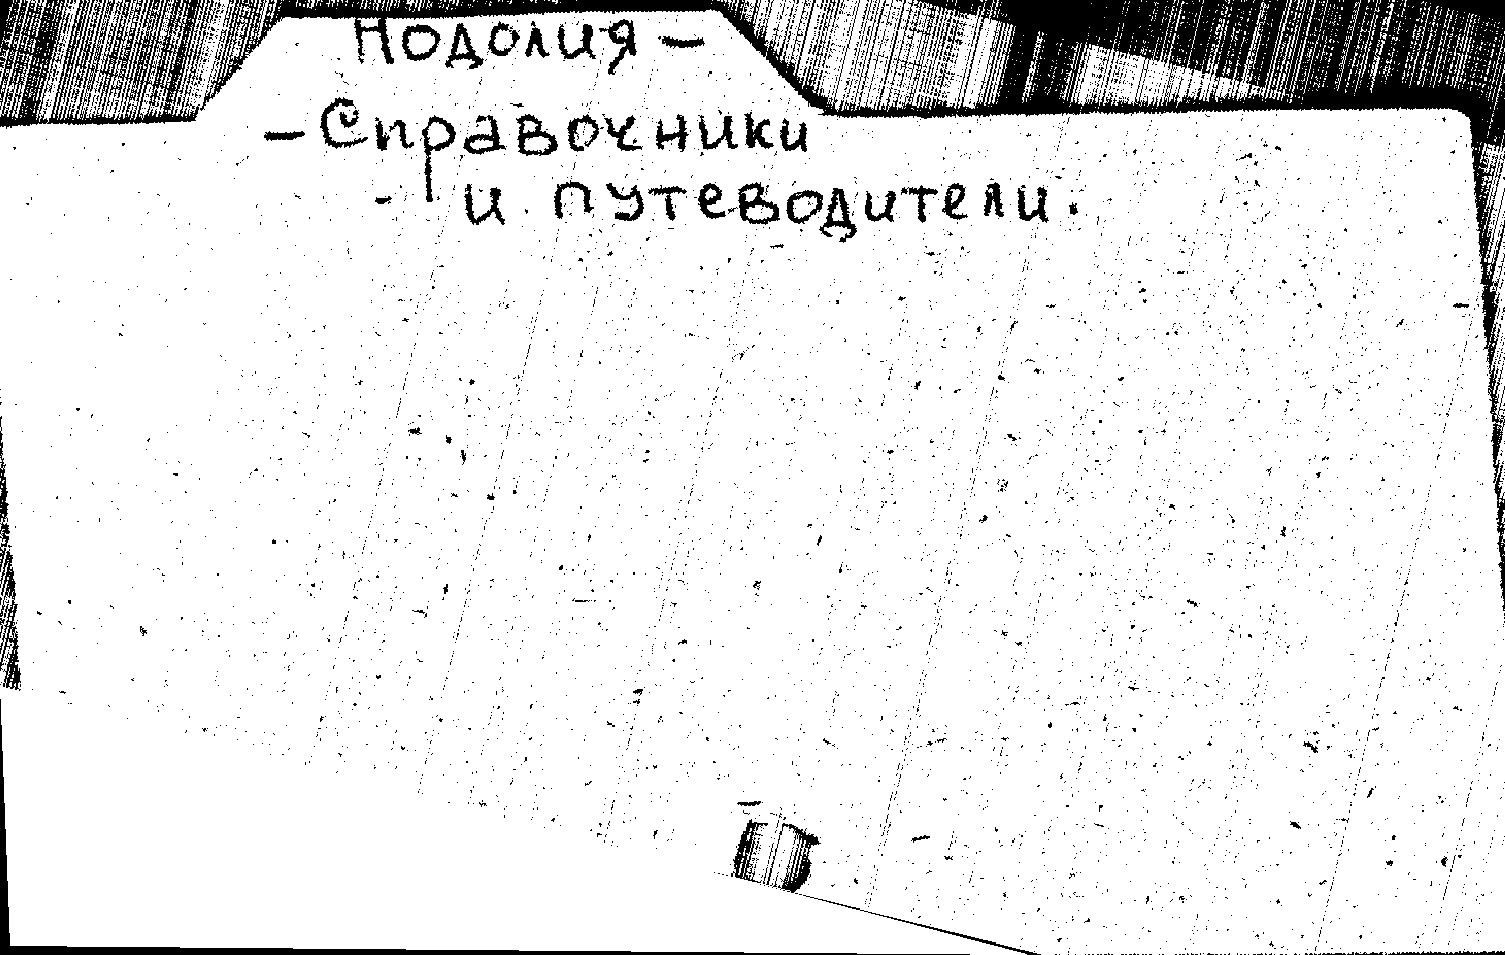 Подолия —
— Справочники
и путеводители.